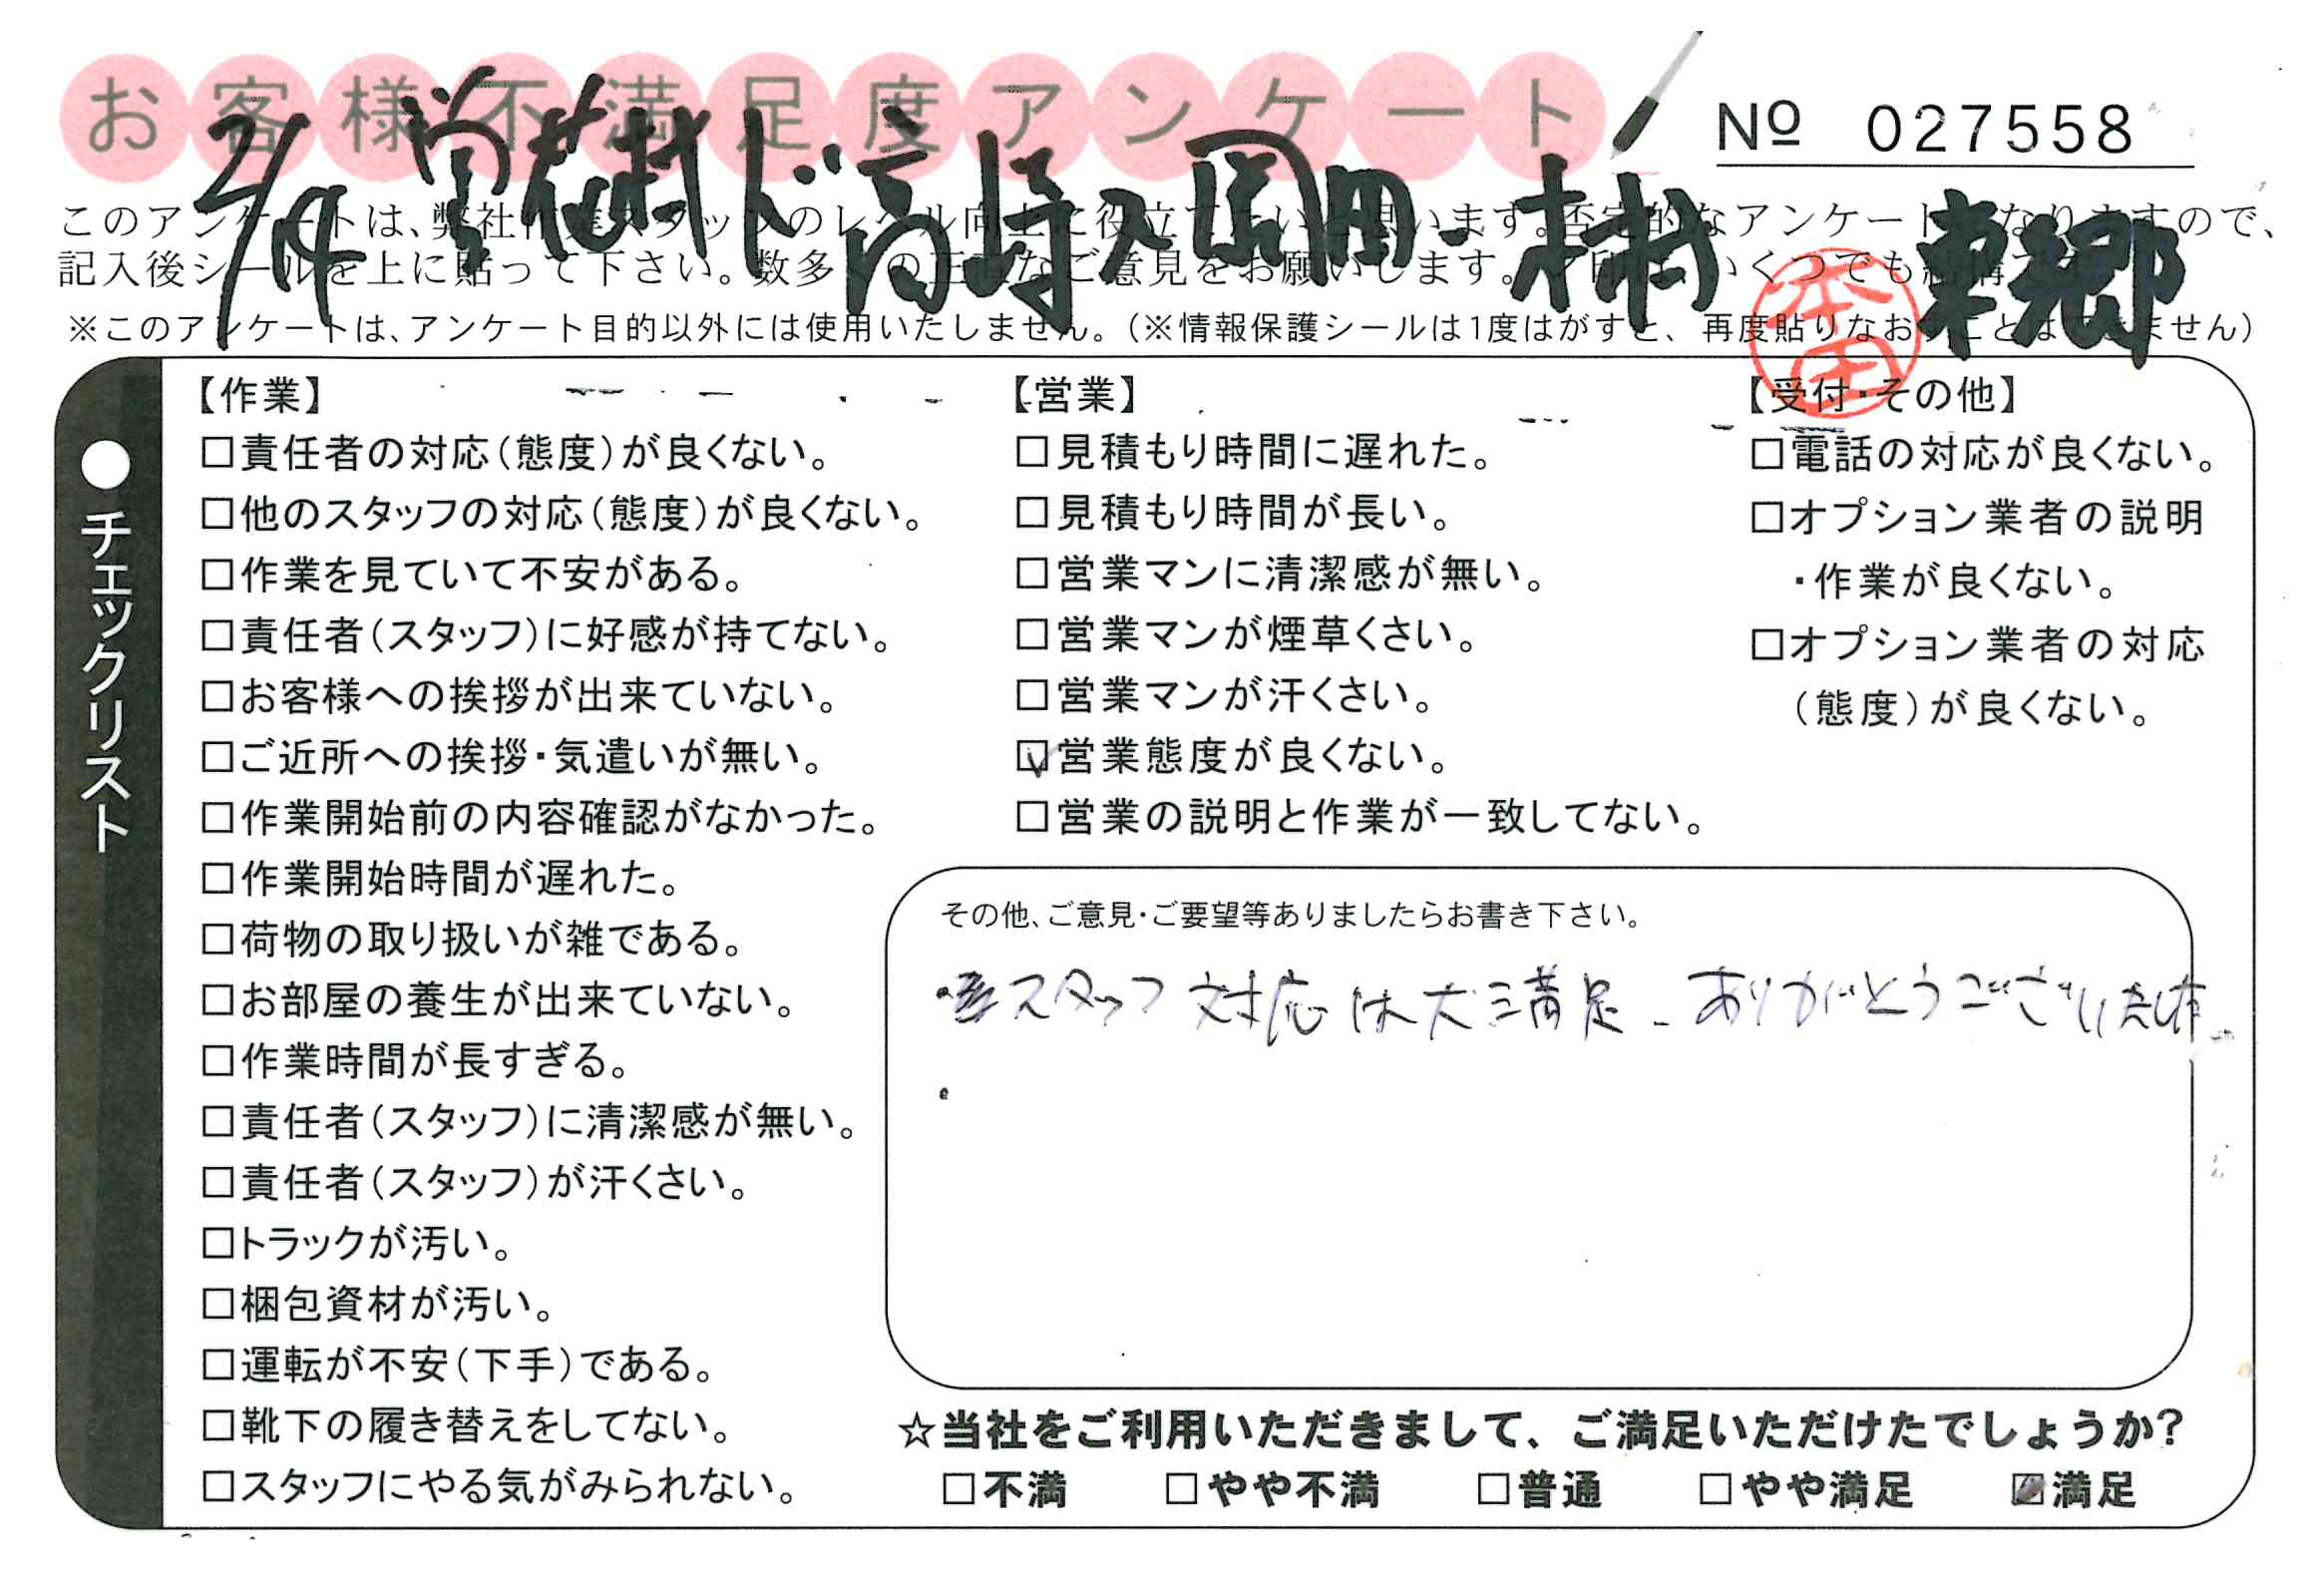 お客様不満足度アンケート
Nº 027558
2/14
このアンケートは、弊社作業スタッフのレベル向上に役立てたいと思います。否定的なアンケートになりますので、
記入後シールを上に貼って下さい。数多くの正直なご意見をお願いします。 いくつでも結構
※このアンケートは、アンケート目的以外には使用いたしません。(※情報保護シールは1度はがすと、再度貼りなおすことはできません)
本田
東郷
●チェックリスト
【作業】
□責任者の対応(態度)が良くない。
□他のスタッフの対応(態度)が良くない。
□作業を見ていて不安がある。
□責任者(スタッフ)に好感が持てない。
□お客様への挨拶が出来ていない。
□ご近所への挨拶・気遣いが無い。
□作業開始前の内容確認がなかった。
□作業開始時間が遅れた。
□荷物の取り扱いが雑である。
□お部屋の養生が出来ていない。
□作業時間が長すぎる。
□責任者(スタッフ)に清潔感が無い。
□責任者(スタッフ)が汗くさい。
□トラックが汚い。
□梱包資材が汚い。
□運転が不安(下手)である。
□靴下の履き替えをしてない。
□スタッフにやる気がみられない。
【営業】
□見積もり時間に遅れた。
□見積もり時間が長い。
□営業マンに清潔感が無い。
□営業マンが煙草くさい。
□営業マンが汗くさい。
☑営業態度が良くない。
□営業の説明と作業が一致してない。
【受付・その他】
□電話の対応が良くない。
□オプション業者の説明
・作業が良くない。
□オプション業者の対応
(態度)が良くない。
その他、ご意見・ご要望等ありましたらお書き下さい。
・スタッフ対応は大満足。ありがとうございました
・
☆当社をご利用いただきまして、ご満足いただけたでしょうか?
□不満 □やや不満 □普通 □やや満足 ☑満足